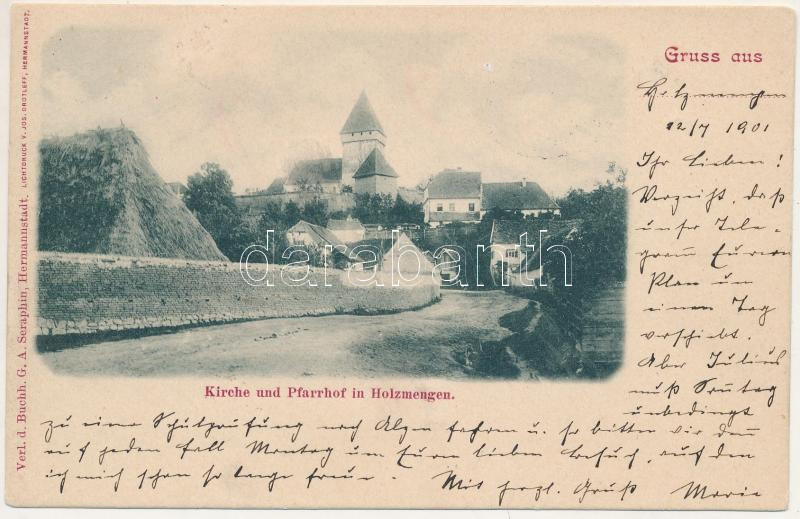 Gruss aus
Holzmengen
12/7 1901
Ihr Lieben!
Verzeiht, daß
unser Tele-
gramm Euren
Plan um
einen Tag
verschiebt.
Aber Julius
muß Sonntag
unbedingt
zu einer Schulprüfung nach Alzen fahren u. so bitten wir denn
auf jeden Fall Montag um Euren lieben Besuch, auf den
ich mich schon so lange freue. Mit herzl. Gruß Marie
Kirche und Pfarrhof in Holzmengen.
Verl. d. Buchh. G. A. Seraphin, Hermannstadt. LICHTDRUCK V. JOS. DROTLEFF, HERMANNSTADT.
darabanth